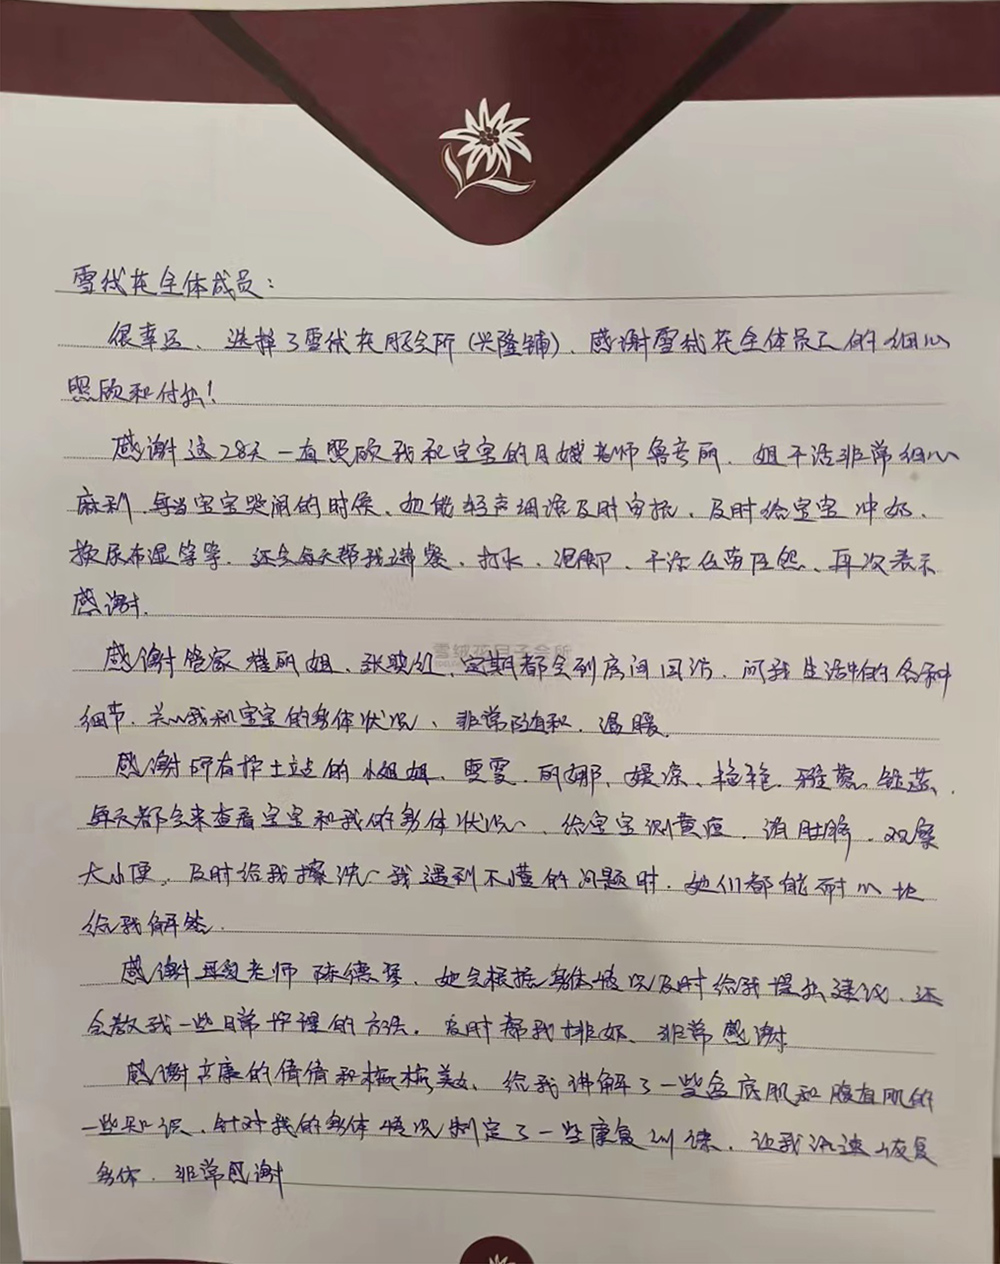 雪绒花全体成员：
很幸运、选择了雪绒花月子会所(兴隆铺)、感谢雪绒花全体员工的细心
照顾和付出！
感谢这28天一直照顾我和宝宝的月嫂老师鲁专丽．姐干活非常细心
麻利．每当宝宝哭闹的时候、她能轻声细语及时安抚、及时给宝宝冲奶、
换尿布湿等等．还会每天帮我端餐、打水、泡脚、任劳任怨、再次表示
感谢．
感谢管家 丽姐、张 、定期都会到房间回访．问我生活中的各种
细节．关心我和宝宝的身体状况、非常随和．温暖．
雪绒花月子会所
感谢所有护士站的小姐姐、雯雯．丽娜、媛 、艳艳．雅 ．
每天都会来查看宝宝和我的身体状况、给宝宝测黄疸．消肚脐．观察
大小便、及时给我擦洗、我遇到不懂的问题时．她们都能耐心地
给我解答．
感谢母婴老师 陈德琴．她会根据身体情况及时给我提出建议．还
会教我一些日常护理的方法．及时帮我排奶、非常感谢
感谢产康的倩倩和梅梅美女、给我讲解了一些盆底肌和腹直肌的
一些知识．针对我的身体情况制定了一些康复训练．让我迅速恢复
身体．非常感谢